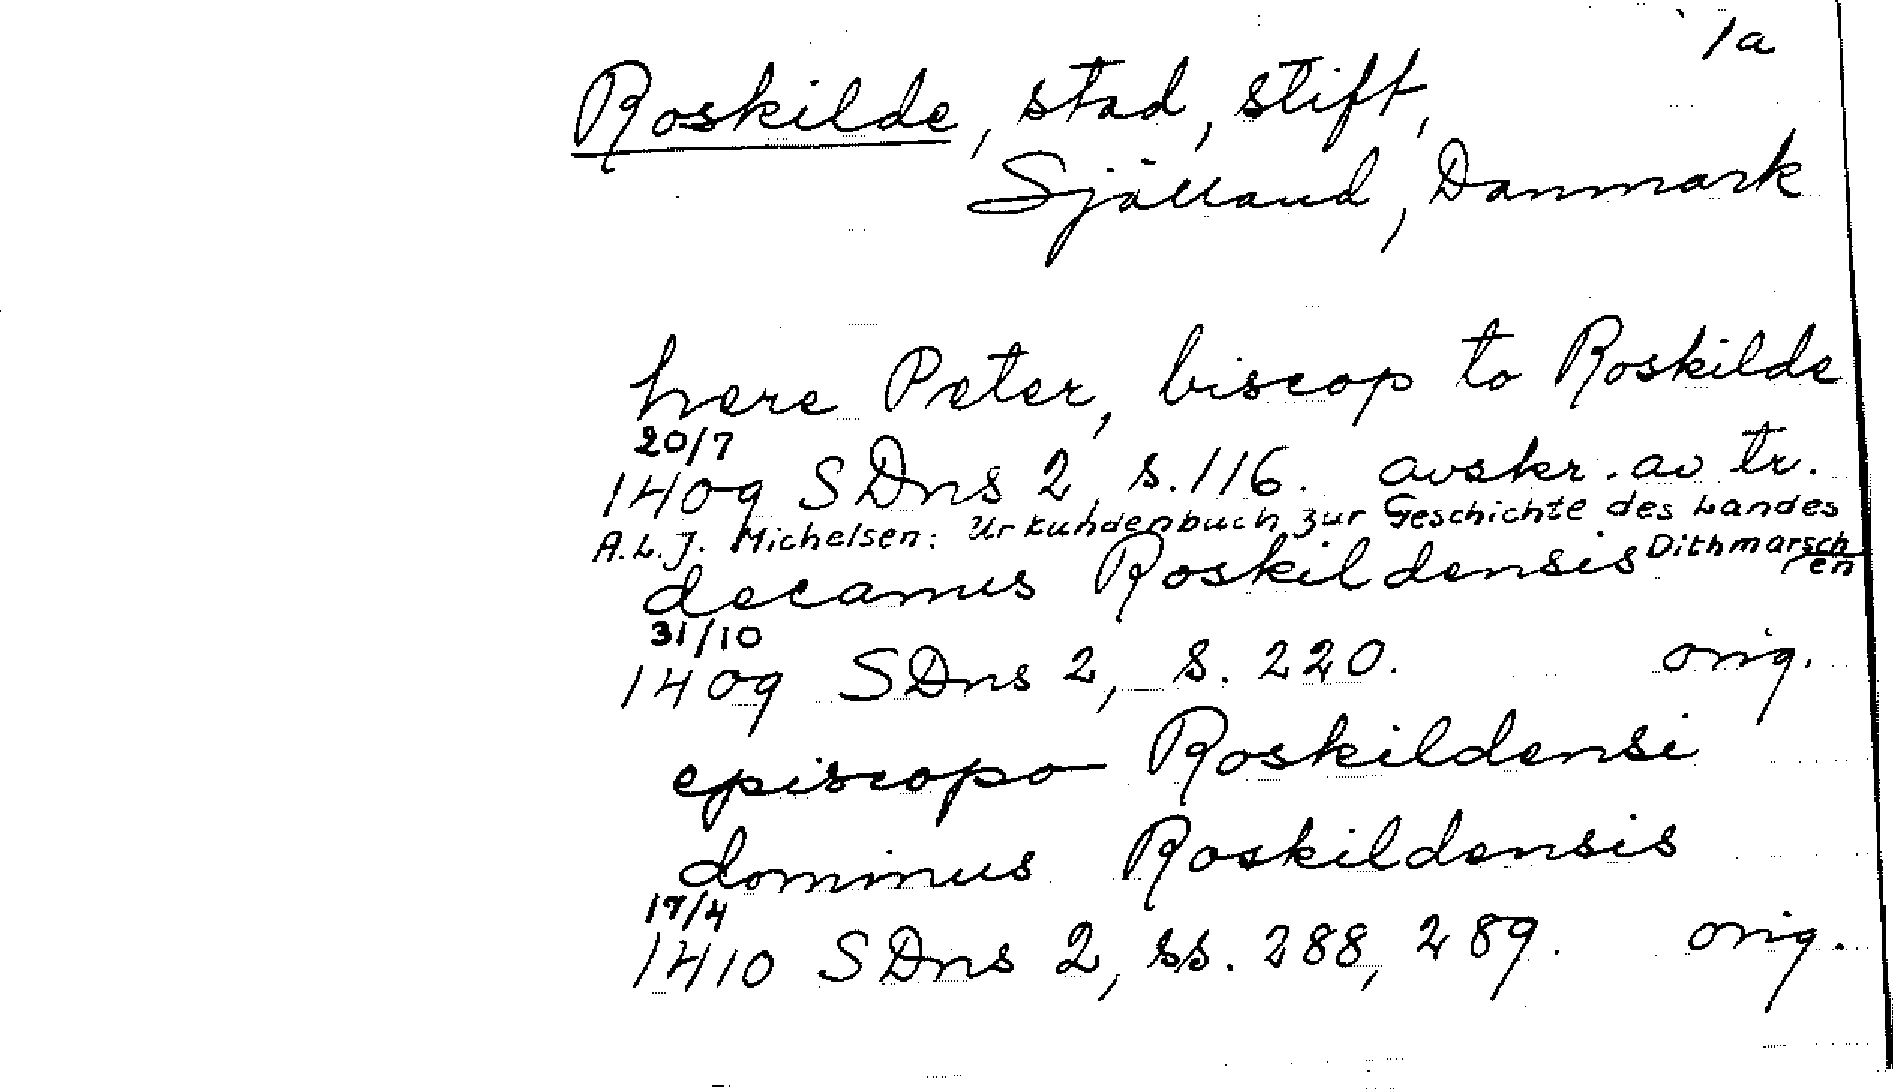 1a
Roskilde, stad, stift,
Själland, Danmark
here Peter, biscop to Roskilde
20/7
1409 SDns 2, s. 116. avskr. av tr.
A.L.J. Michelsen: Urkundenbuch zur Geschichte des Landes
Dithmarschen
decanus Roskildensis
31/10
1409 SDns 2, s. 220. orig.
episcopo Roskildensi
dominus Roskildensis
17/4
1410 SDns 2, ss. 288, 289. orig.